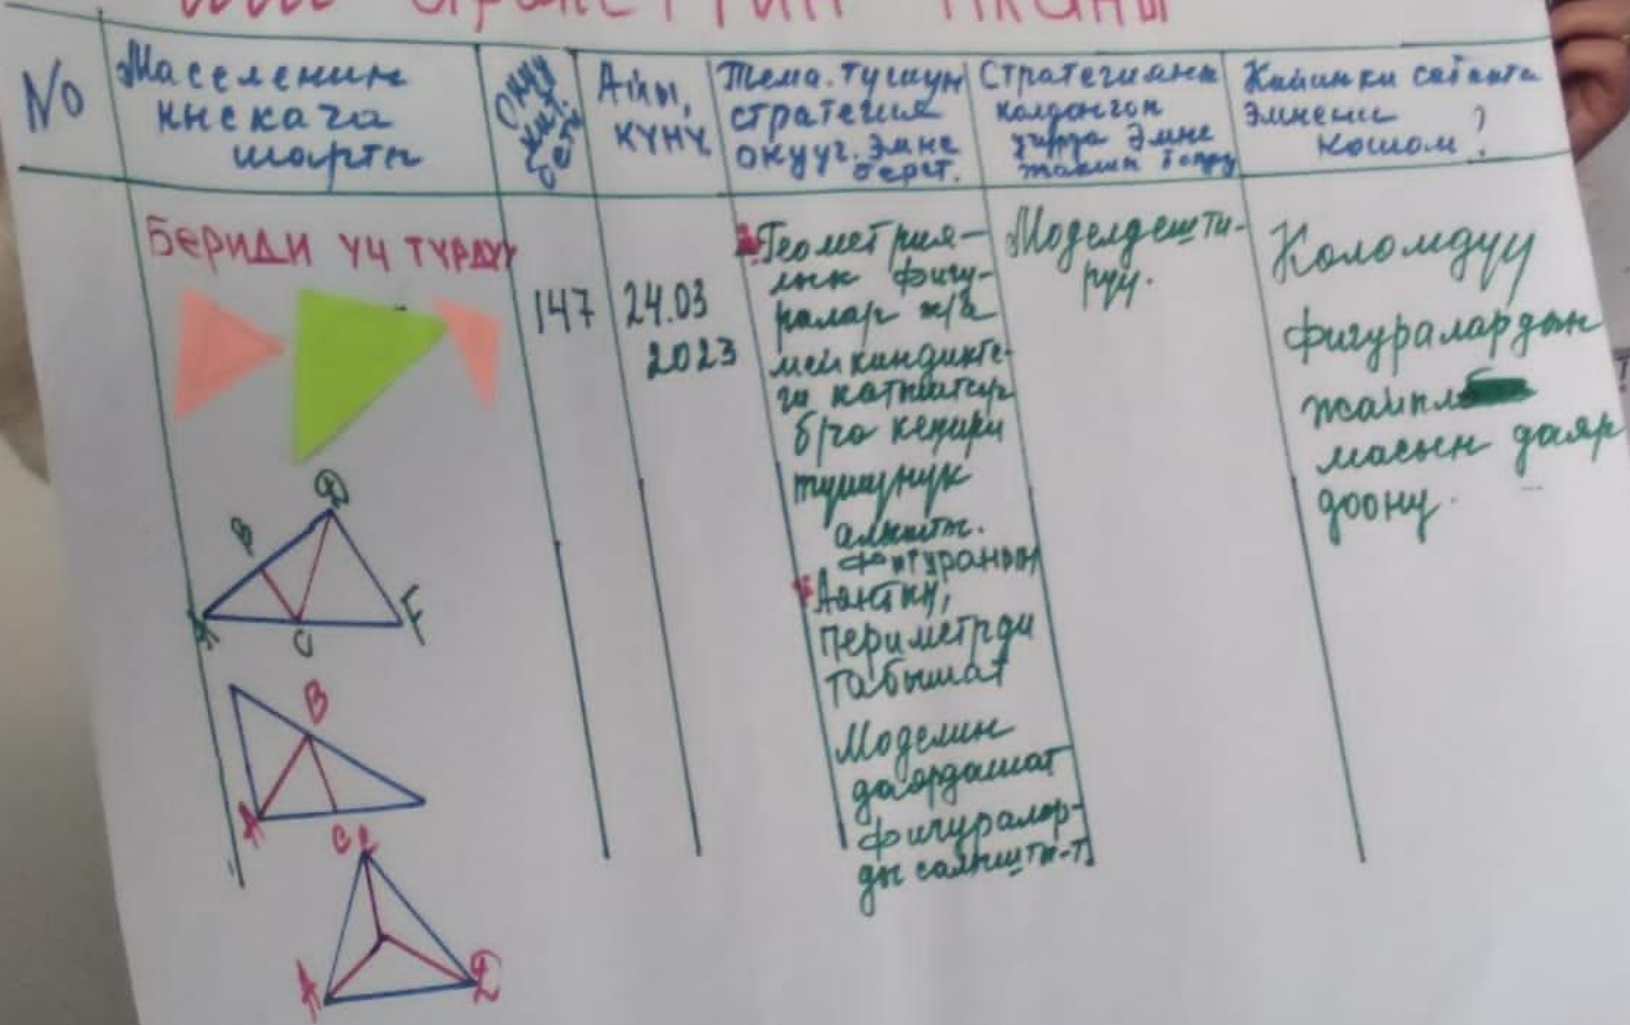 No
Маселенин
кыскача
шарты
Окуу
кит.
бети
Айы,
күнү
Тема. түшүн
стратегия
окууч. эмне
берет.
Стратегияны
колдонгон
учурда эмне
жакшы болду
Кийинки сабакта
эмнени
кошом?
Бериди үч түрдүү
147
24.03
2023
Геометрия-
лык фигу-
ралар ж/а
мейкиндикте-
ги катыштар
б/ча кеңири
түшүнүк
алышты.
фигуранын
Аянтын,
периметрди
табышат
Моделин
даярдашат
фигуралар-
ды салышты-т.
Моделдешти-
рүү.
Көлөмдүү
фигуралардын
жайыл
масын даяр
доону.
D
B
A
C
F
B
A
C
A
D